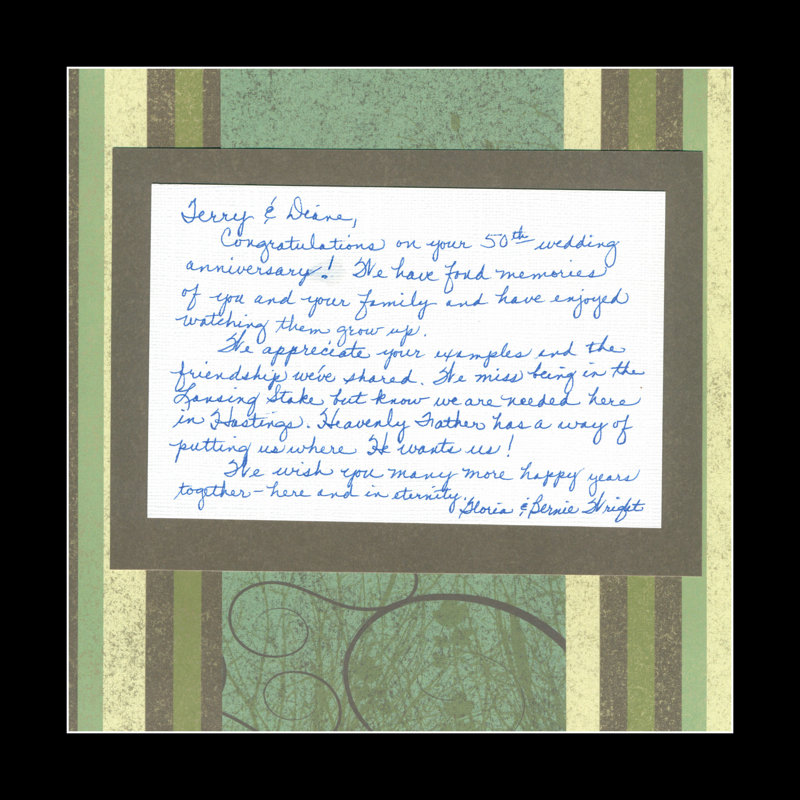 Terry & Diane,
Congratulations on your 50th wedding
anniversary! We have fond memories
of you and your family and have enjoyed
watching them grow up.
We appreciate your examples and the
friendship we've shared. We miss being in the
Lansing Stake but know we are needed here
in Hastings. Heavenly Father has a way of
putting us where He wants us!
We wish you many more happy years
together - here and in eternity.
Gloria & Bernie Wright